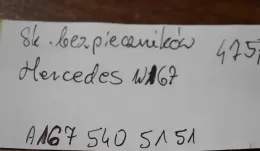 Sk. bezpieczników 475,
Mercedes W167
A167 540 51 51